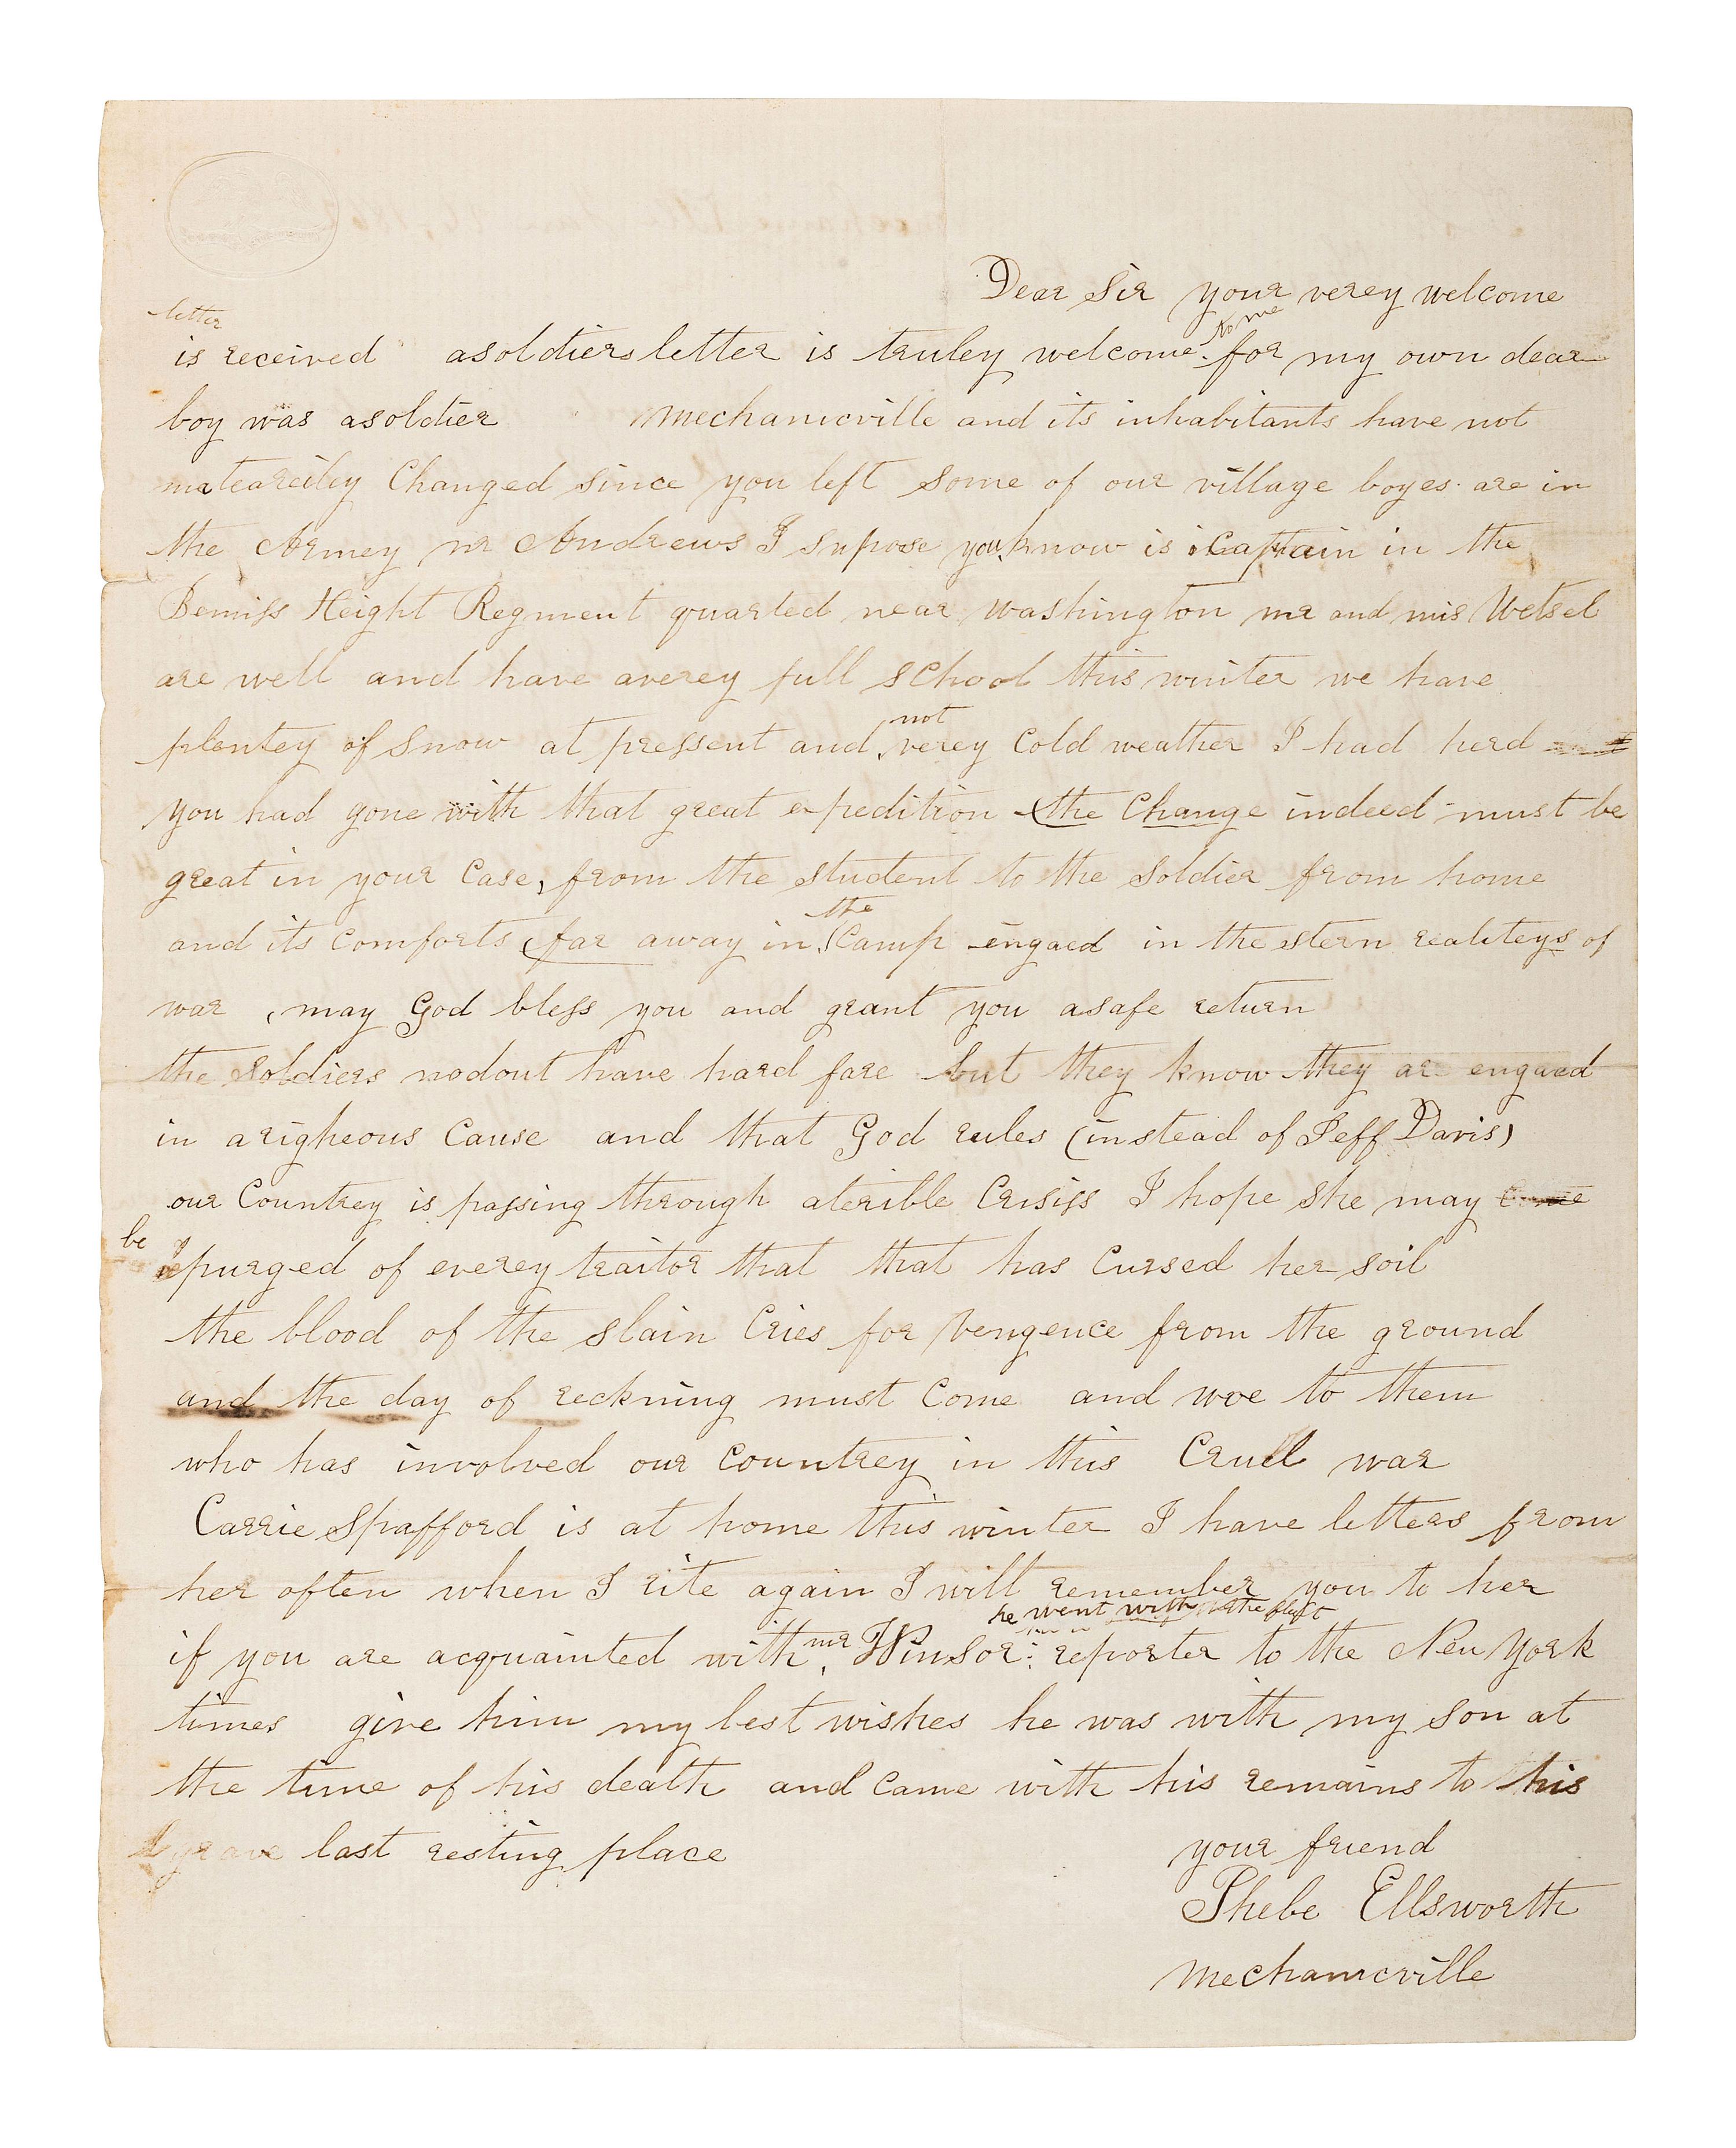 Dear Sir your verey welcome
letter
is received asoldiers letter is truley welcome to me for my own dear
boy was asoldier Mechanicville and its inhabitants have not
matearciley Changed since you left some of our village boyes are in
the Armey mr Andrews I supose you know is Captain in the
Bemiss Height Regment quarted near Washington mr and mis Wetsel
are well and have averey full school this winter we have
plentey of snow at pressent and not verey Cold weather I had herd
you had gone with that great expedition the Change indeed must be
great in your Case, from the student to the soldier from home
and its Comforts far away in the Camp engaed in the stern realiteys of
war, may God bless you and grant you asafe return
the soldiers nodout have hard fare but they know they ar engaed
in arigheous Cause and that God rules (instead of Jeff Davis)
our Countrey is passing through aterible Crisiss I hope she may
be purged of everey traitor that that has Cursed her soil
the blood of the slain Cries for vengence from the ground
and the day of reckning must Come and woe to them
who has involved our Countrey in this Cruell war
Carrie Spafford is at home this winter I have letters from
her often when I rite again I will remember you to her
he went with the fleet
if you are acquainted with mr Winsor reporter to the New York
times give him my best wishes he was with my son at
the time of his death and Came with his remains to this
grave last resting place
your friend
Phebe Ellsworth
Mechanicville